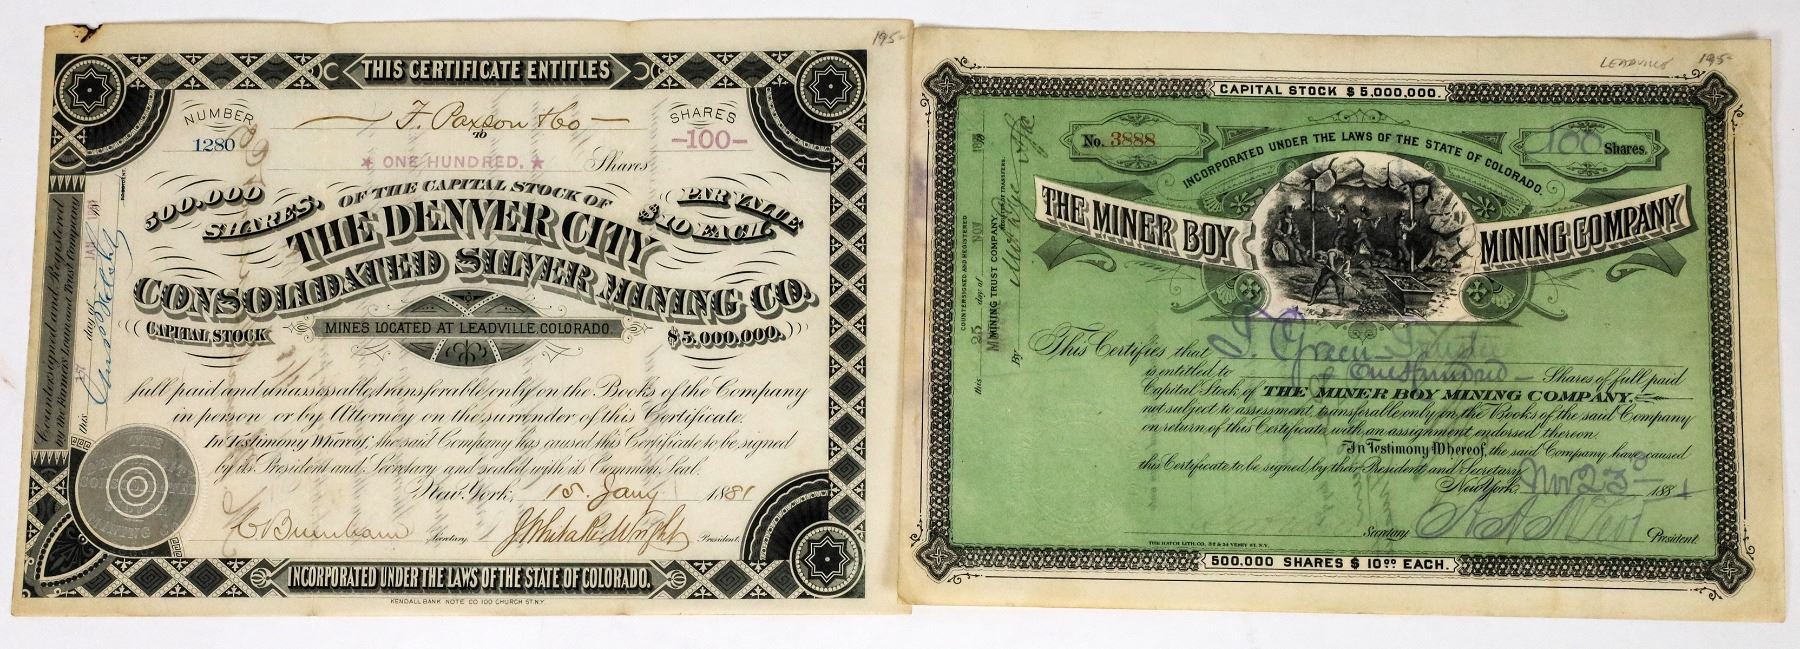 195-
THIS CERTIFICATE ENTITLES
NUMBER
1280
F. Paxson & Co
to
SHARES
-100-
★ ONE HUNDRED. ★ Shares
500.000 SHARES.
OF THE CAPITAL STOCK OF
PAR VALUE $10 EACH.
THE DENVER CITY
CONSOLIDATED SILVER MINING CO.
CAPITAL STOCK
MINES LOCATED AT LEADVILLE, COLORADO.
$5.000.000.
full paid and unassessable, transferable, only on the Books of the Company
in person or by Attorney on the surrender of this Certificate.
In Testimony Whereof, the said Company has caused this Certificate to be signed
by its President and Secretary and sealed with its Common Seal.
New York, 15. Jany 1881
Secretary
President
INCORPORATED UNDER THE LAWS OF THE STATE OF COLORADO.
KENDALL BANK NOTE CO 100 CHURCH ST. N.Y.
Countersigned and Registered
by the Farmers Loan and Trust Company
this day of JAN
LEADVILLE 195-
CAPITAL STOCK $ 5,000,000.
No. 3888
INCORPORATED UNDER THE LAWS OF THE STATE OF COLORADO.
100 Shares.
THE MINER BOY MINING COMPANY
This Certifies that
is entitled to One Hundred Shares of full paid
Capital Stock of THE MINER BOY MINING COMPANY.
not subject to assessment, transferable only on the Books of the said Company
on return of this Certificate with an assignment endorsed thereon.
In Testimony Whereof, the said Company have caused
this Certificate to be signed by their President and Secretary
New York, Nov 23 1881
Secretary
President
THE HATCH LITH. CO. 32 & 34 VESEY ST. N.Y.
500.000 SHARES $ 10 00 EACH.
COUNTERSIGNED AND REGISTERED
this 25 day of NOV
MINING TRUST COMPANY,
By